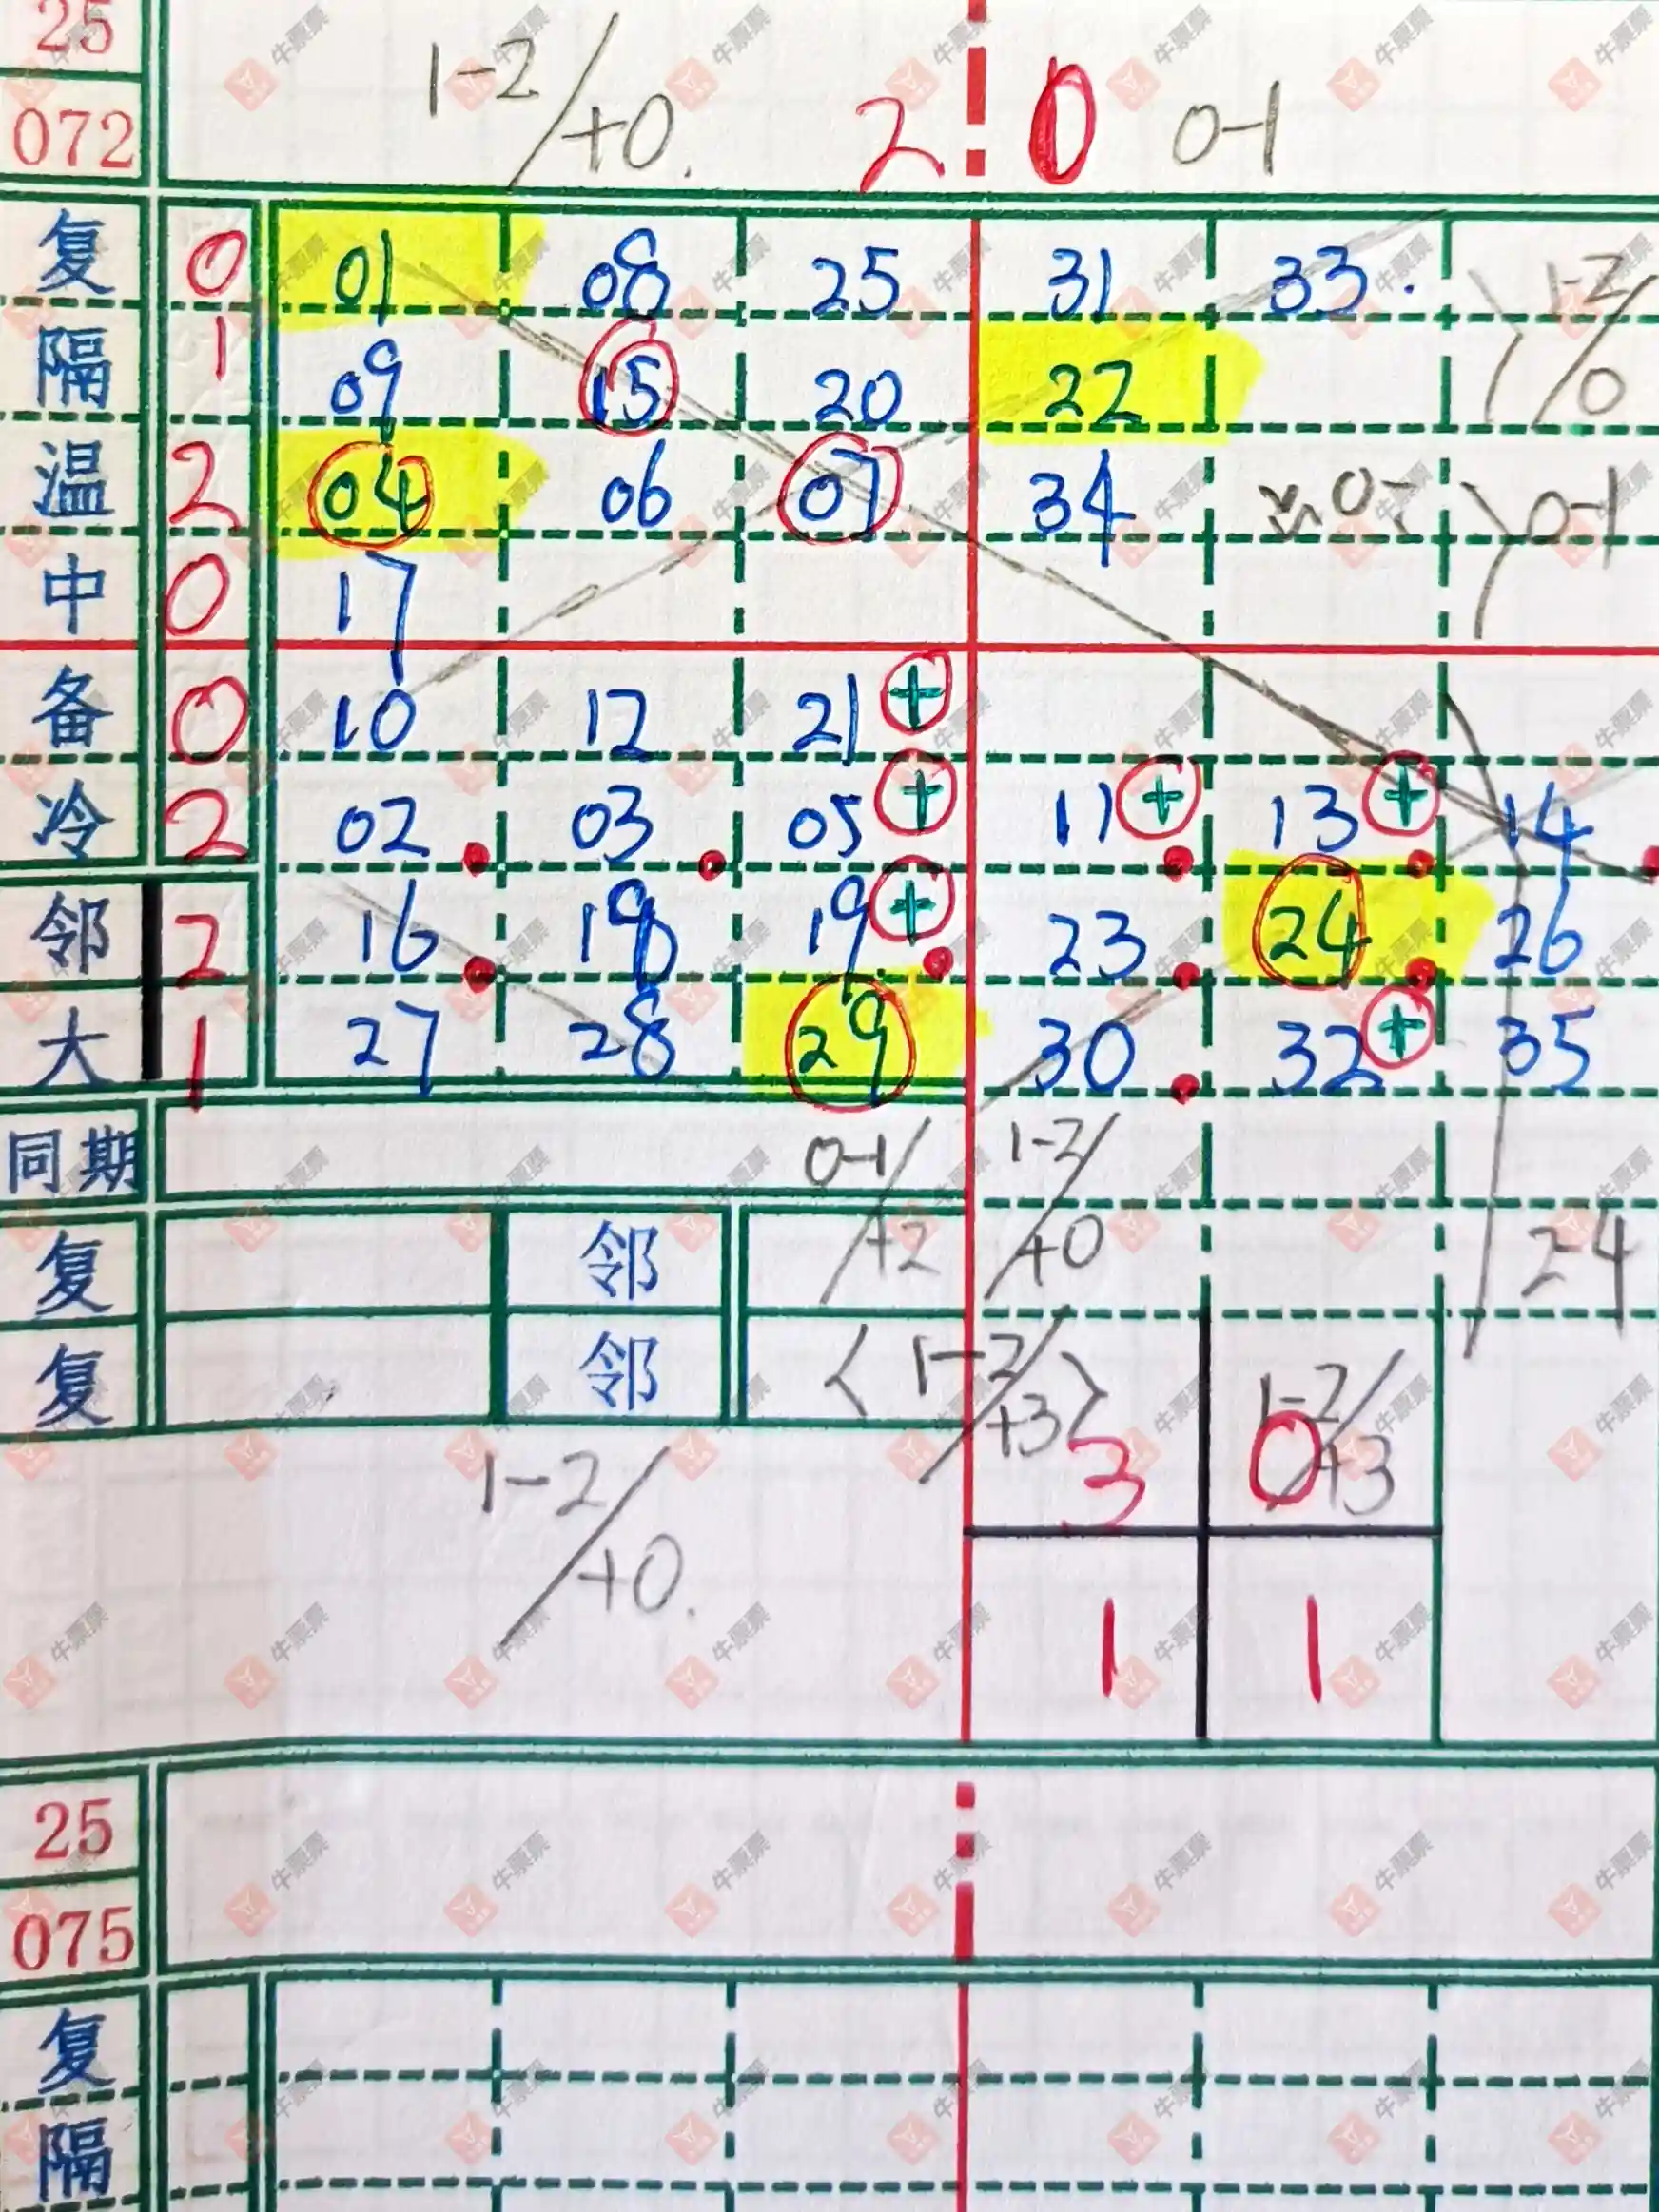 25
1-2/+0.
2:0 0-1
072
复 0 01 08 25 31 33. 1-2/0
隔 1 09 15 20 22
温 2 04 06 07 34 0-1
中 0 17
备 0 10 12 21 +
冷 2 02 03 05 + 11 + 13 + 14
邻 2 16 18 19 + 23 24 26
大 1 27 28 29 30 32 + 35
同期 0-1/+2 1-2/+0
复 邻 2-4
复 邻 <1-2/+3> 1-2/+3
3 0
1-2/+0.
1 1
25
075
复
隔
牛票票